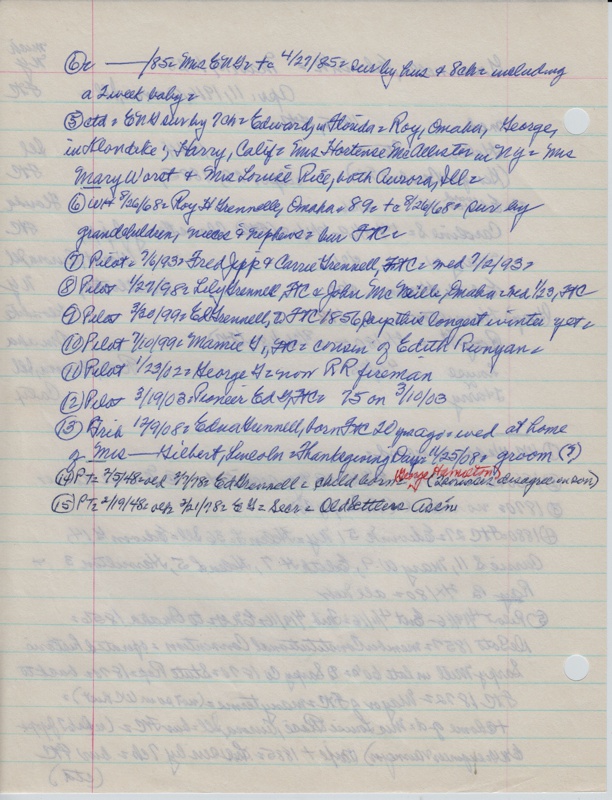 ⑥ r —— /85= Mrs ENG= tc 4/27/85= sur by hus & 8ch= including
a 2 week baby=
⑤ ctd= ENG sur by 7ch= Edward, in Florida= Roy, Omaha, George,
in Klondike; Harry, Calif= Mrs Hortense McAllister in Ny= Mrs
Mary Worst & Mrs Louise Rice, both Aurora, Ill=
⑥ WH 8/26/68= Roy H Grennelle, Omaha= 89= tc 8/26/68= sur by
grandchildren, nieces & nephews= bur FTC=
⑦ Pilot= 7/6/93= Fred Jipp & Carrie Grennell, FTC= med 7/2/93=
⑧ Pilot 1/27/98= Lily Grennell, FTC & John McNeille, Omaha= wed 1/23, FTC
⑨ Pilot 3/30/99= Ed Grennell, to FTC 1856 says this longest winter yet=
⑩ Pilot 7/10/99= Mamie G, FTC= cousin of Edith Runyan=
⑪ Pilot 1/23/02= George G= now RR fireman
⑫ Pilot 3/19/03= Pioneer Ed G, FTC= 75 on 3/10/03
⑬ Trib 12/9/08= Edna Grennell, born FTC 20 yrs ago= wed at home
of Mrs —— Gilbert, Lincoln= Thanksgiving Day= 11/25/08= groom (?)
⑭ PT= 2/5/48= wed 2/7/78= Ed Grennell= child born George Hamilton (disagree on son)
⑮ PT= 2/19/48= 2/21/78= EG= Secr= Old Settlers Assn